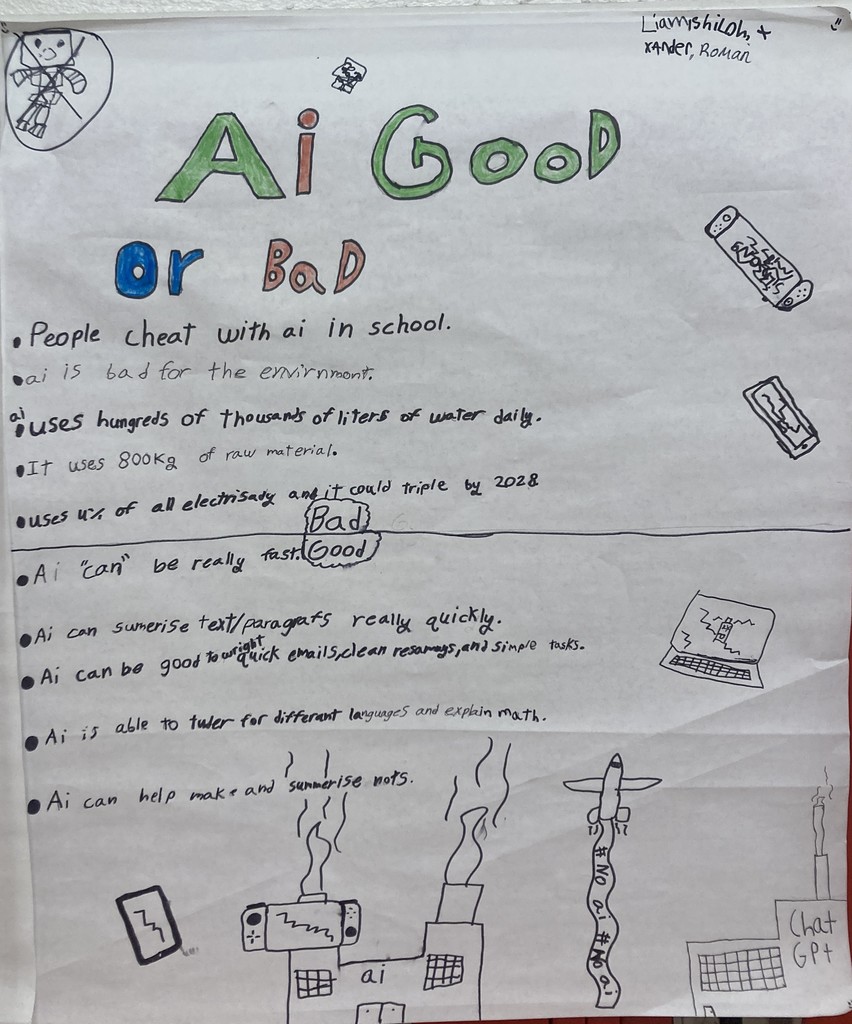 Liam, shiloh, +
xander, Roman
Ai GooD
or BaD
• People cheat with ai in school.
• ai is bad for the envirnmont.
• ai uses hungreds of thousands of liters of water daily.
• It uses 800Kg of raw material.
• uses 4% of all electrisady and it could triple by 2028
Bad
Good
• Ai "can" be really fast.
• Ai can sumerise text/paragrafs really quickly.
• Ai can be good to wright quick emails, clean resamays, and simple tasks.
• Ai is able to tuder for differant languages and explain math.
• Ai can help make and summerise nots.
# No ai # No ai
ai
Chat
GPt